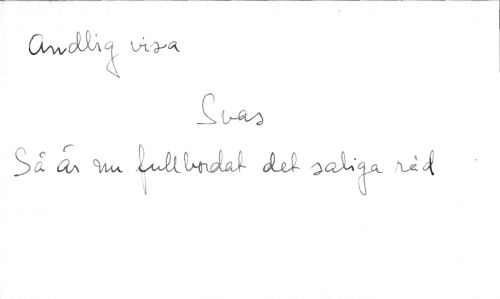 Andlig visa
Svas
Så är nu fullbordat det saliga råd